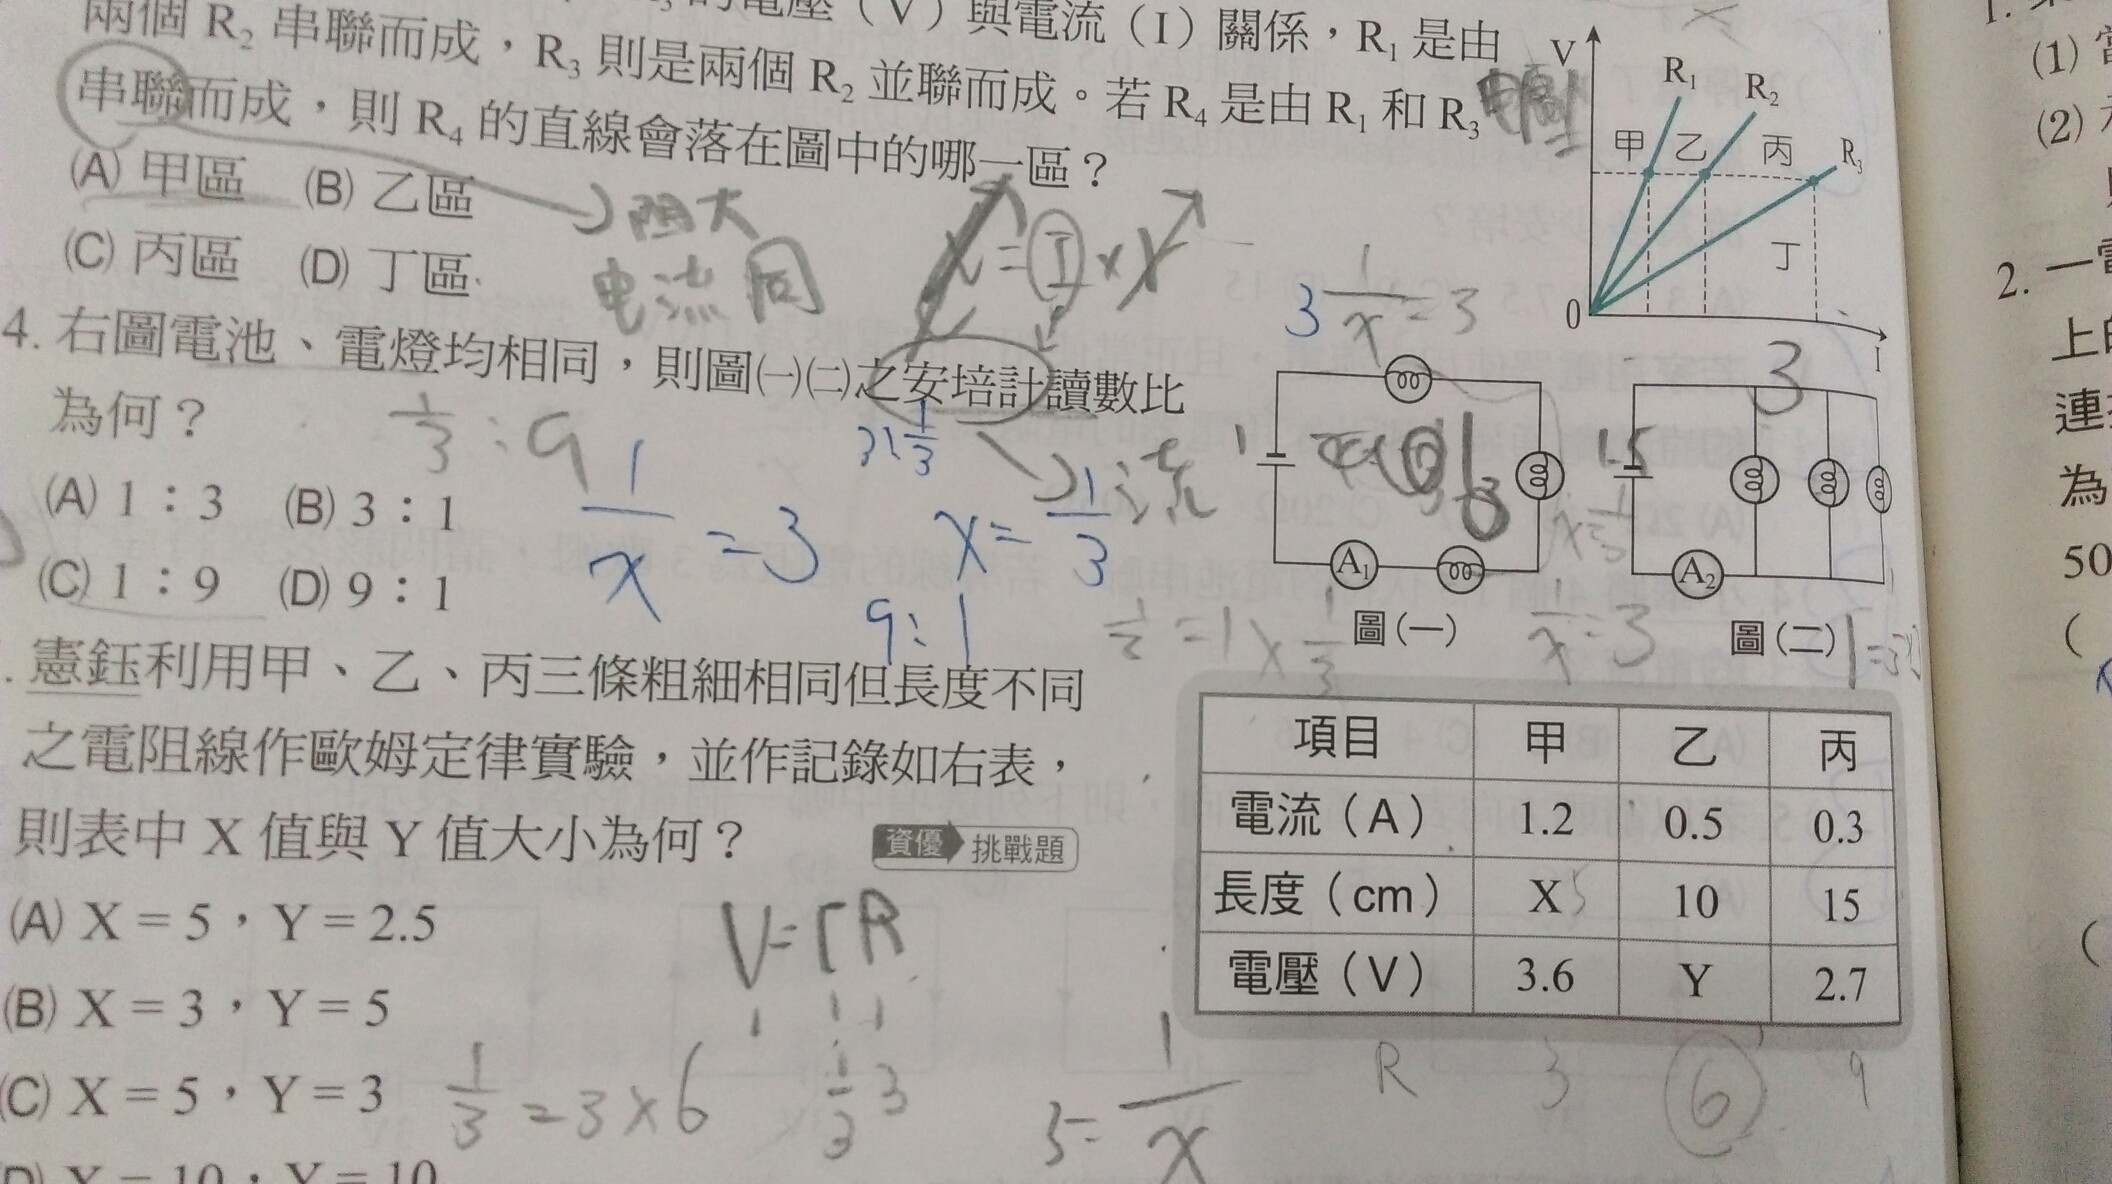 的電壓（V）與電流（I）關係，R₁ 是由
兩個 R₂ 串聯而成，R₃ 則是兩個 R₂ 並聯而成。若 R₄ 是由 R₁ 和 R₃
串聯而成，則 R₄ 的直線會落在圖中的哪一區？
(A) 甲區 (B) 乙區
(C) 丙區 (D) 丁區
阻大
电流 同
V
R₁
R₂
R₃
甲
乙
丙
丁
0
I
4. 右圖電池、電燈均相同，則圖㈠㈡之安培計讀數比
為何？
(A) 1：3 (B) 3：1
(C) 1：9 (D) 9：1
1/3 : 9
1/x = 3
x = 1/3
流
9:1
3 1/x = 3
3
1
1.5
A₁
A₂
圖(一)
圖(二)
1/x = 3
憲鈺利用甲、乙、丙三條粗細相同但長度不同
之電阻線作歐姆定律實驗，並作記錄如右表，
則表中 X 值與 Y 值大小為何？
資優 挑戰題
(A) X = 5，Y = 2.5
(B) X = 3，Y = 5
(C) X = 5，Y = 3
(D) X = 10，Y = 10
V = IR
1/3 = 3 × 6
1/3 3
項目 甲 乙 丙
電流（A） 1.2 0.5 0.3
長度（cm） X 5 10 15
電壓（V） 3.6 Y 2.7
R 3 6 9
1.
(1)
(2)
2. 一
上的
連
為
50
(
(